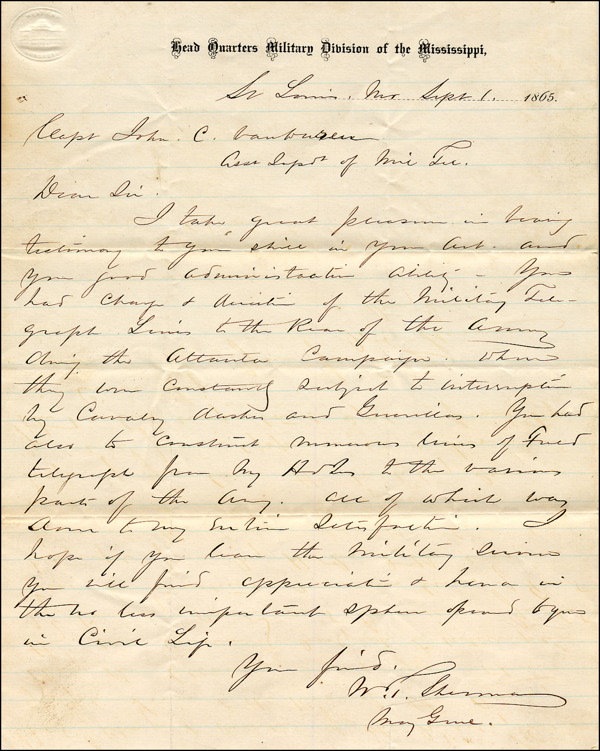 Head Quarters Military Division of the Mississippi,
St Louis, Mo. Sept 1. 1865.
Capt John. C. Vanburen
Asst Supdt of Mil Tel.
Dear Sir.
I take great pleasure in bearing
testimony to your skill in your Art. and
your good administrative ability – You
had charge & direction of the Military Tele-
graph Lines to the Rear of the Army
during the Atlanta Campaign. where
they were constantly subject to interruption
by Cavalry dashes and Guerillas. You had
also to construct numerous lines of Field
telegraph from my Hd Qrs to the various
parts of the Army. all of which was
done to my Entire Satisfaction. I
hope if you leave the Military Service
you will find appreciation & honor in
the no less important sphere opened to you
in Civil Life.
Your friend.
W. T. Sherman
Maj Genl.